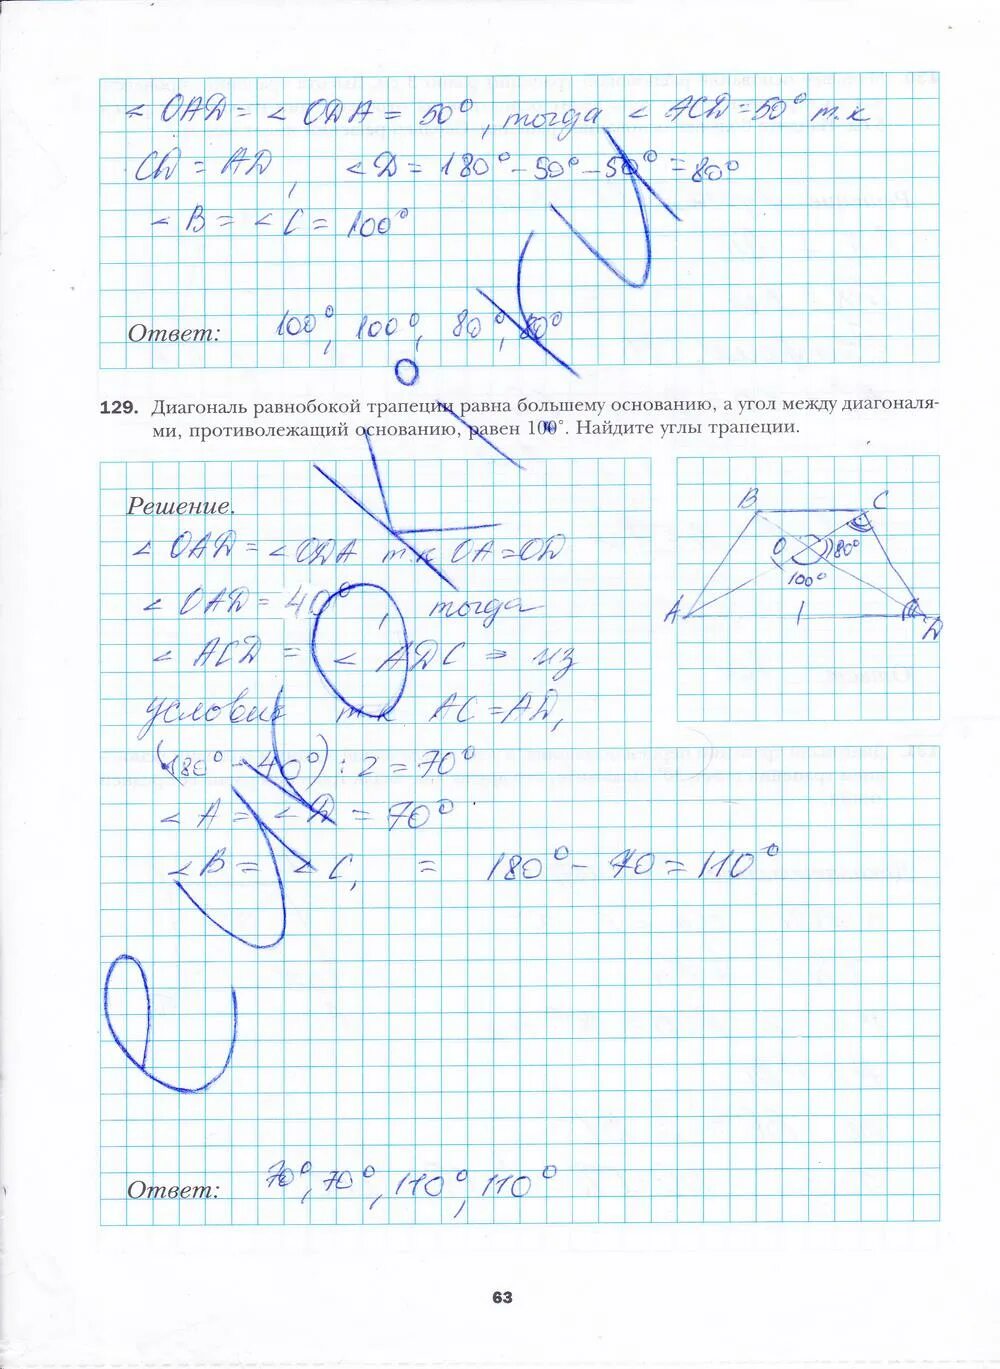 ∠ OAD = ∠ ODA = 50°, тогда ∠ ACD = 50° т.к
CD = AD, ∠D = 180° - 50° - 50° = 80°
∠ B = ∠ C = 100°
Ответ: 100°, 100°, 80°, 80°
129. Диагональ равнобокой трапеции равна большему основанию, а угол между диагоналя-
ми, противолежащий основанию, равен 100°. Найдите углы трапеции.
Решение.
∠ OAD = ∠ODA т.к OA = OD
∠ OAD = 40°, тогда
∠ ACD = ∠ ADC из
условия т.к. AC = AD,
(180° - 40°) : 2 = 70°
∠ A = ∠ D = 70°
∠ B = ∠ C, = 180° - 70 = 110°
B C
O 80°
100°
A D
Ответ: 70°, 70°, 110°, 110°
63